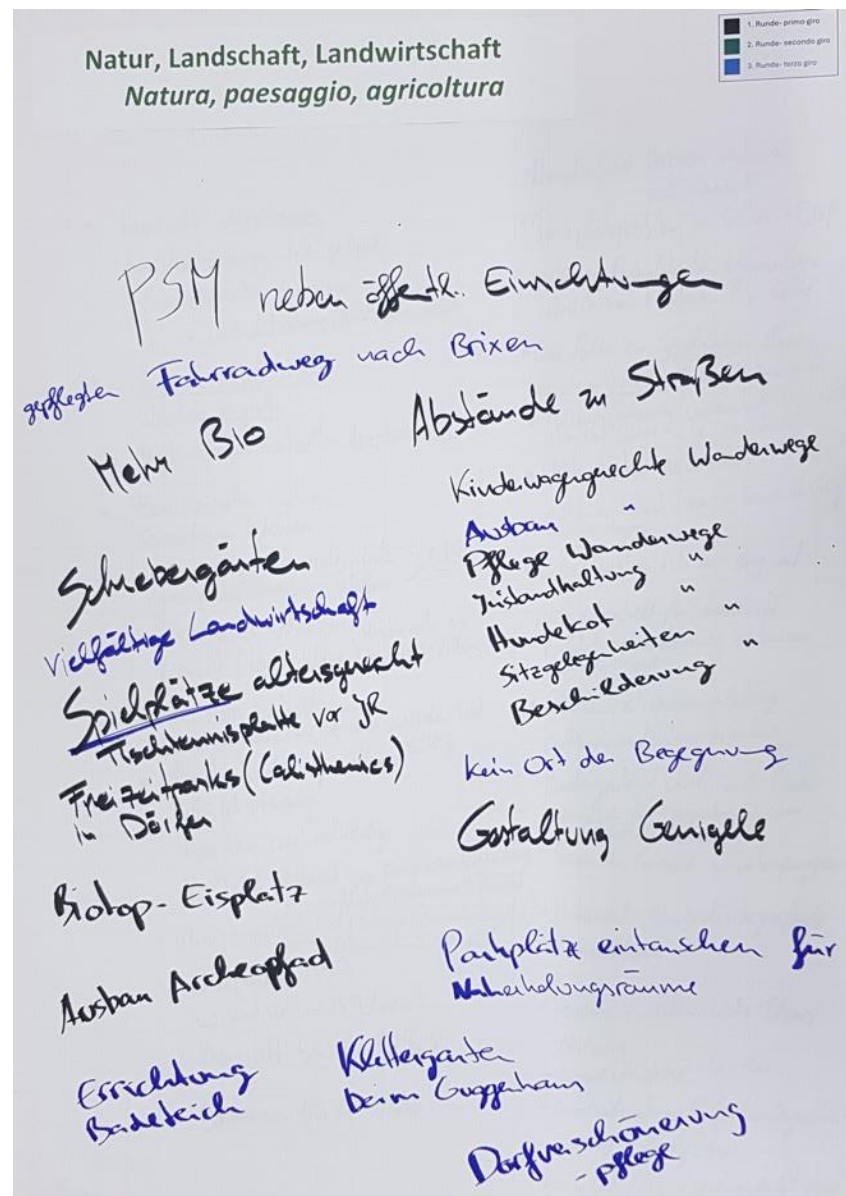 Natur, Landschaft, Landwirtschaft
Natura, paesaggio, agricoltura
1. Runde- primo giro
2. Runde- secondo giro
3. Runde- terzo giro
PSM neben öffentl. Einrichtungen
gepflegten Fahrradweg nach Brixen
Mehr Bio
Abstände zu Straßen
Kinderwagengerechte Wanderwege
Ausbau "
Pflege Wanderwege
Instandhaltung "
Hundekot "
Sitzgelegenheiten "
Beschilderung "
Schrebergärten
vielfältige Landwirtschaft
Spielplätze altersgerecht
Tischtennisplatte vor JR
Freizeitparks (Calisthenics)
in Dörfern
kein Ort der Begegnung
Gestaltung Genigele
Biotop-Eisplatz
Ausbau Archeopfad
Parkplätze eintauschen für
Naherholungsräume
Errichtung
Badeteich
Klettergarten
beim Guggenhaus
Dorfverschönerung
-pflege